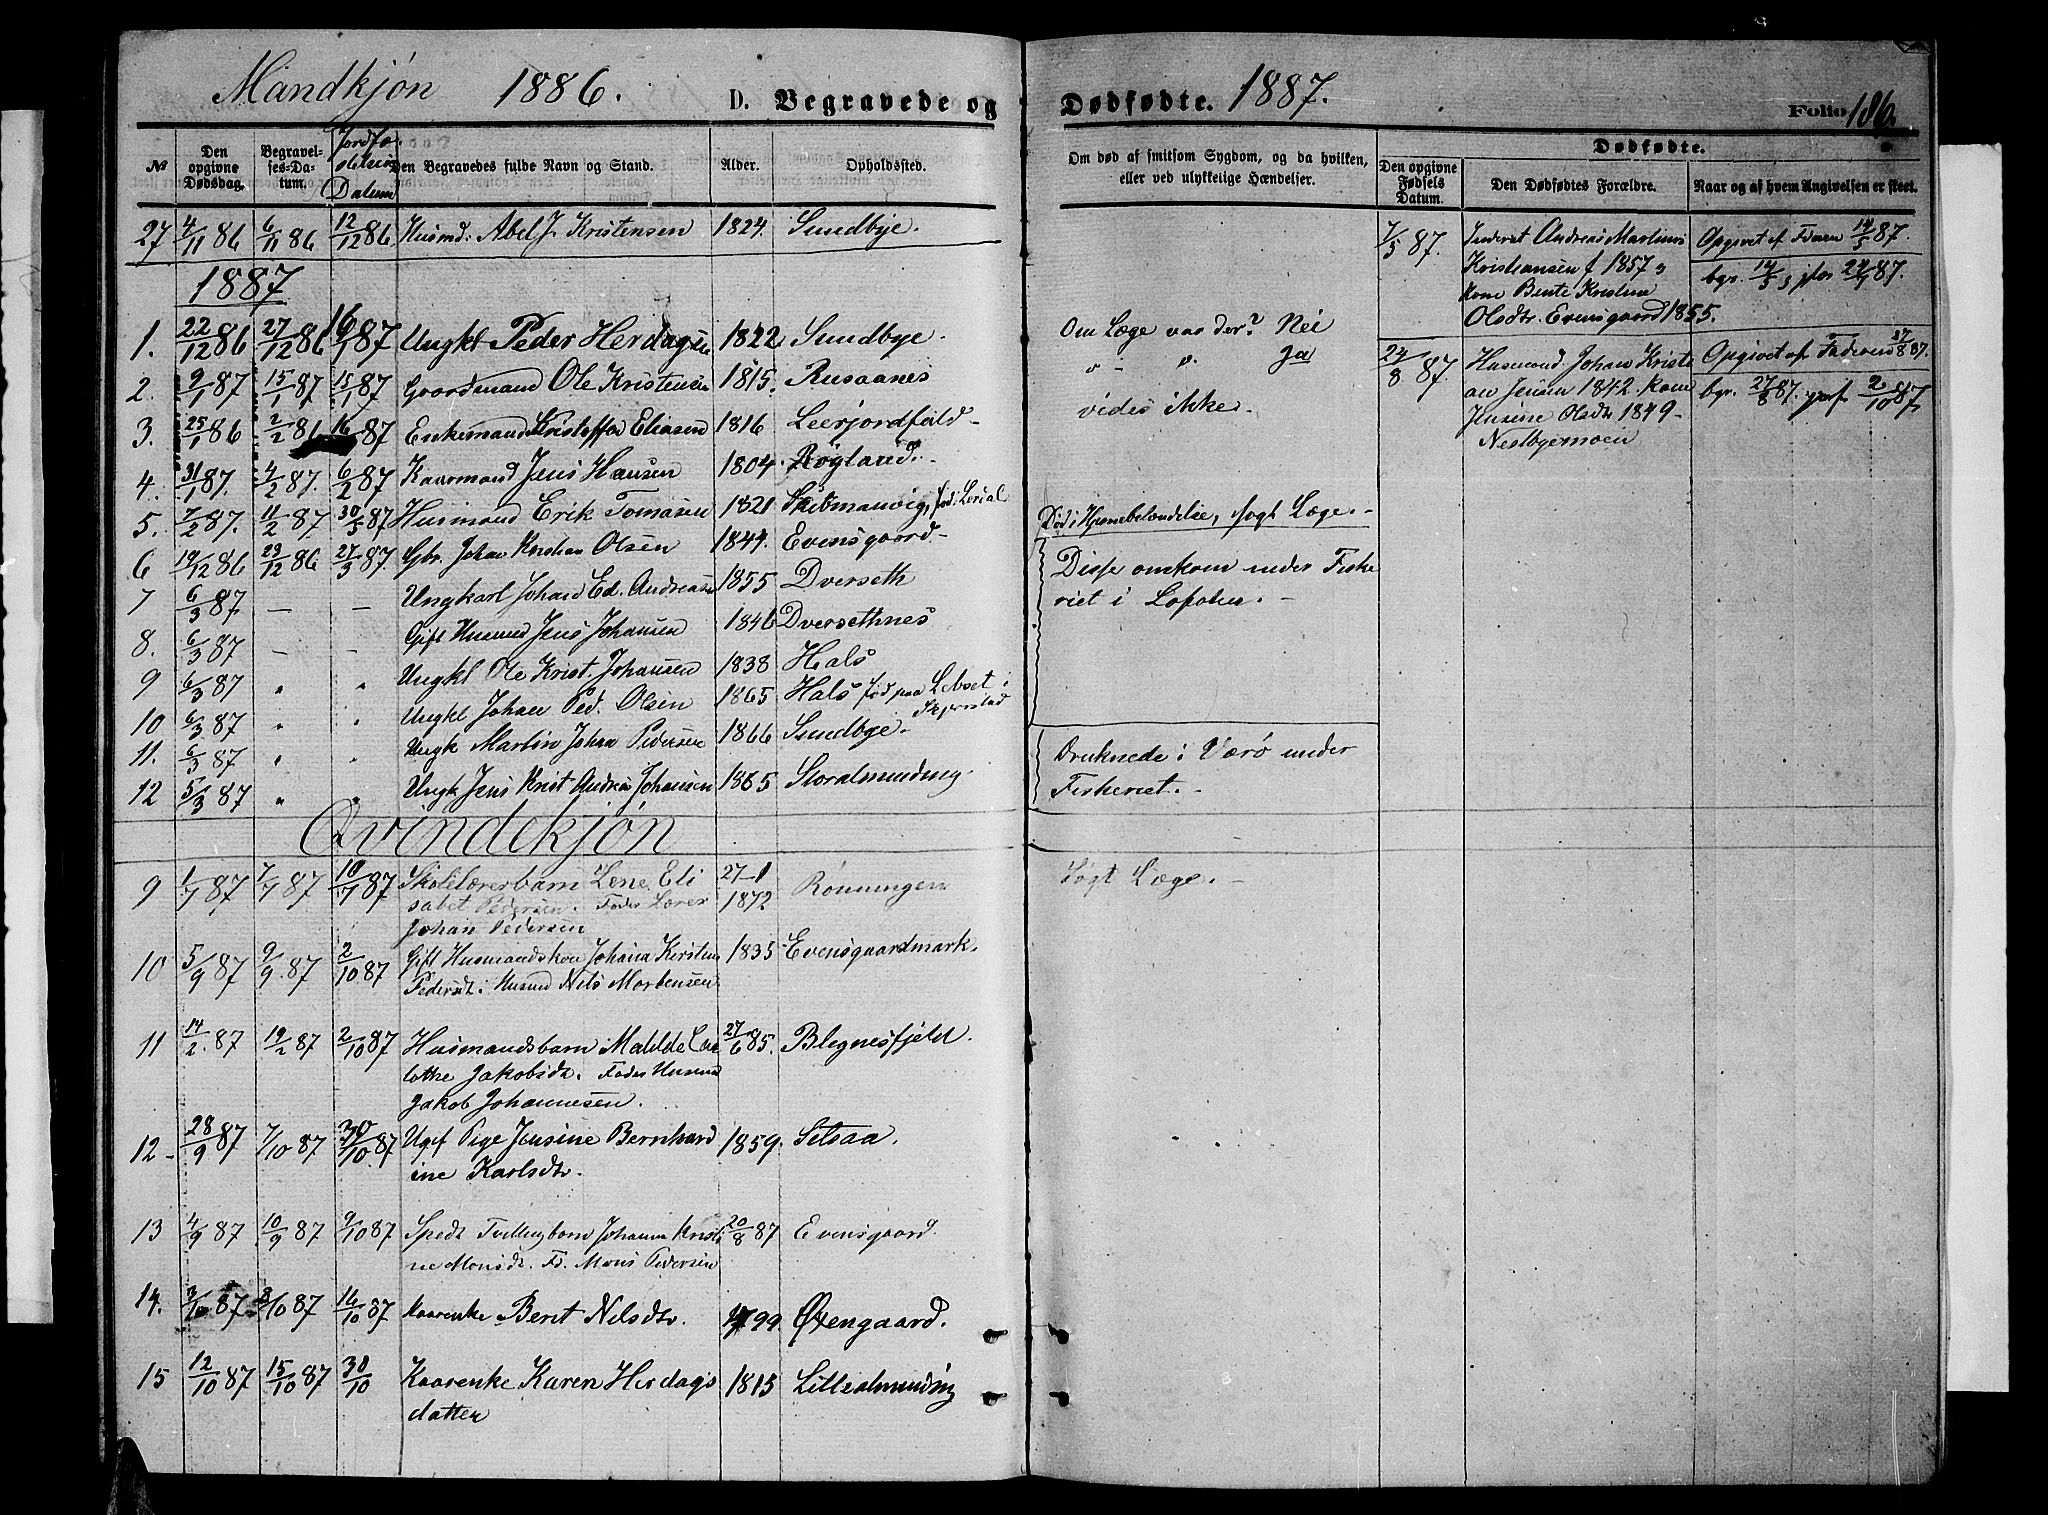 Mandkjøn 1886. D. Begravede og Dødfødte. 1887. Folio 186.
№ Den opgivne Dødsdag. Begravelses-Datum. Jordfæstelses Datum Den Begravedes fulde Navn og Stand. Alder. Opholdssted. Om død af smitsom Sygdom, og da hvilken, eller ved ulykkelige Hændelser. Dødfødte. Den opgivne Fødsels Datum. Den Dødfødtes Forældre. Naar og af hvem Angivelsen er skeet.
27 4/11 86 6/11 86 12/12 86 Husmd. Abel J. Kristensen 1824. Sundbye.
1887
1. 22/12 86 27/12 86 16/1 87 Ungkl Peder Herdagsen 1822 Sundbye. Om Læge var der? Nei
2. 9/1 87 15/1 87 15/1 87 Gaardmand Ole Kristensen 1815. Rusaanes " - " Ja
3. 25/1 86 2/2 86 16 87 Enkemand Kristoffer Eliasen 1816 Leerjordfald vides ikke.
4. 31/1 87. 4/2 87. 6/2 87 Kaarmand Jens Hansen 1804. Røgland.
5. 7/2 87. 11/2 87 30/5 87 Husmand Erik Tomasen 1821 Skibmanvig, Død i Hjernebetændelse, søgt Læge.
6 19/12 86 23/12 86 27/3 87 Gbr. Johan Kristian Olsen 1844. Evensgaard
7 6/3 87 — — Ungkarl Johan Ed. Andreasen 1855 Dverseth
8. 6/3 87 — — Gift Husmd Jens Johansen 1846 Dversethnes
9 6/3 87 " " Ungkl Ole Krist. Johansen 1838 Hals
10 6/3 87 " " Ungkl Johan Ped. Olsen 1865 Hals født paa Lebset i Skjerstad
11. 6/3 87 " " Ungk Martin Johan Pedersen 1866 Sundbye.
12 5/3 87 " " Ungk Jens Krist Andreas Johansen 1865 Storalmunding
Disse omkom under Fiske
riet i Lofoten.
Druknede i Værø under
Fiskeriet.
Qvindekjøn
9 1/7 87 7/7 87 10/7 87 Skolelærerbarn Lene Eli 27-1 1872 Rønningen Søgt Læge.
sabet Pedersen. Fader Lærer
Johan Pedersen
10 5/9 87 9/9 87 2/10 87 Gift Husmandskone Johana Kirstine 1835 Evensgaardmark.
Pedersdt. Husmd Nils Mortensen
11 14/2 87 19/2 87 2/10 87 Husmandsbarn Matilde Char 27/6 85. Blegnesfjeld.
lotte Jakobsdt. Fader Husmd
Jakob Johannesen.
12 28/9 87 7/10 87 30/10 87 Ugif Pige Jensine Bernhard 1859. Setsaa.
ine Karlsdtr.
13 4/9 87 10/9 87 9/10 87 Spedt Tvillingbarn Johanna Kristi 20/8 87 Evensgaard.
ne Monsdt. Fd. Mons Pedersen
14. 3/10 87 8/10 87 16/10 87 Kaarenke Berit Nilsdtr. 1799. Øxengaard.
15 12/10 87 15/10 87 30/10 Kaarenke Karen Herdags 1815 Lillealmunding
datter
7/5 87. Inderst Andreas Martinus Opgivet af Faderen 14/5 87.
Kristiansen f 1857 og bgr. 14/5, jfor 24/7 87.
kone Bente Kristine
Olsdtr. Evensgaard 1855.
24/8 87. Husmand Johan Kristi Opgivet af Faderen 27/8 87.
an Jensen 1842. kone bgr. 27/8 87. jorf. 2/10 87.
Jensine Olsdtr 1849
Nestbyemoen